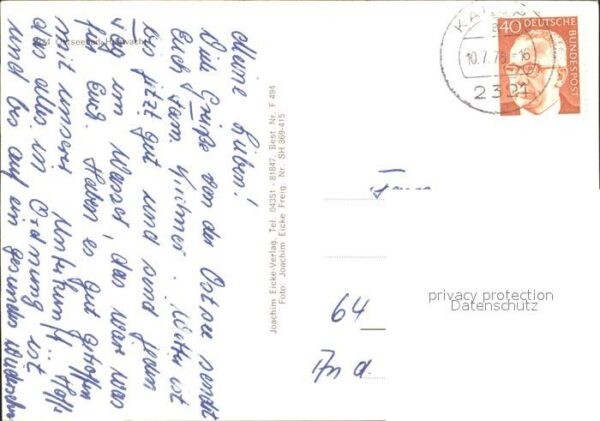 2324 Ostseebad Hohwacht
Meine Lieben!
Viele Grüße von der Ostsee sendet
Euch Fam. Wetter ist
bis jetzt gut und sind jeden
Tag im Wasser, das wär was
für Euch. Haben es gut getroffen
mit unserer Unterkunft. Hoffe
das alles in Ordnung ist
und bis auf ein gesundes Wiedersehn
Joachim Eicke-Verlag, Tel. 04351 - 81847, Best Nr. F 494
Foto: Joachim Eicke Freig. Nr. SH 369-415
40 DEUTSCHE
BUNDESPOST
10.7.75-16
2321
64
An d.
privacy protection
Datenschutz